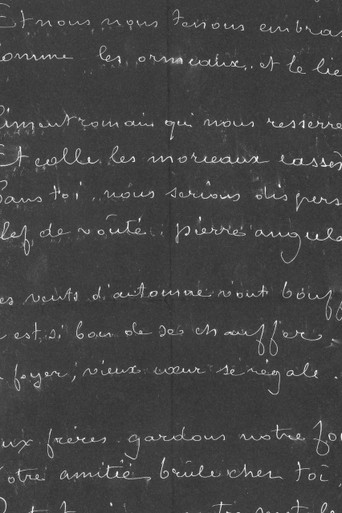 Et nous nous tenons embras
comme les ormeaux, et le lie
Ciment romain qui nous resserre
Et colle les morceaux cassés
Sans toi, nous serions dispers
clef de voûte, pierre angula
es vents d'automne vont bouff
est si bon de se chauffer
foyer, vieux cœur sénégale
ux frères gardons notre fo
otre amitié brûle chez toi,